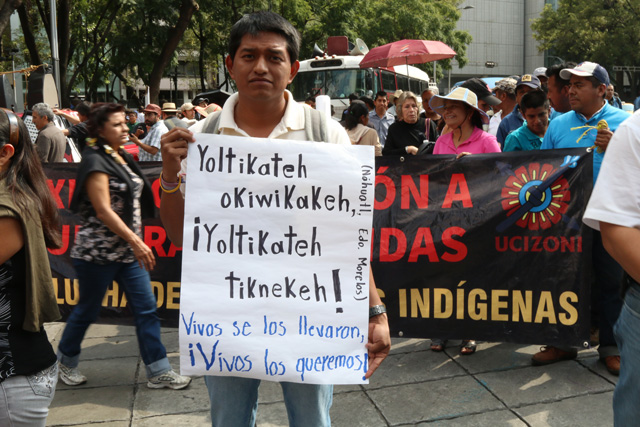 Yoltikateh
okiwikakeh,
¡Yoltikateh
tiknekeh!
(Náhuatl, Edo. Morelos)
Vivos se los llevaron,
¡Vivos los queremos!
ÓN A
DAS
INDÍGENAS
UCIZONI